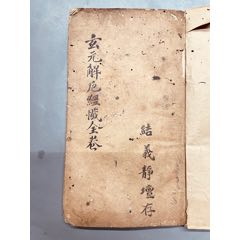 玄元解厄經懺全卷
結義靜壇存